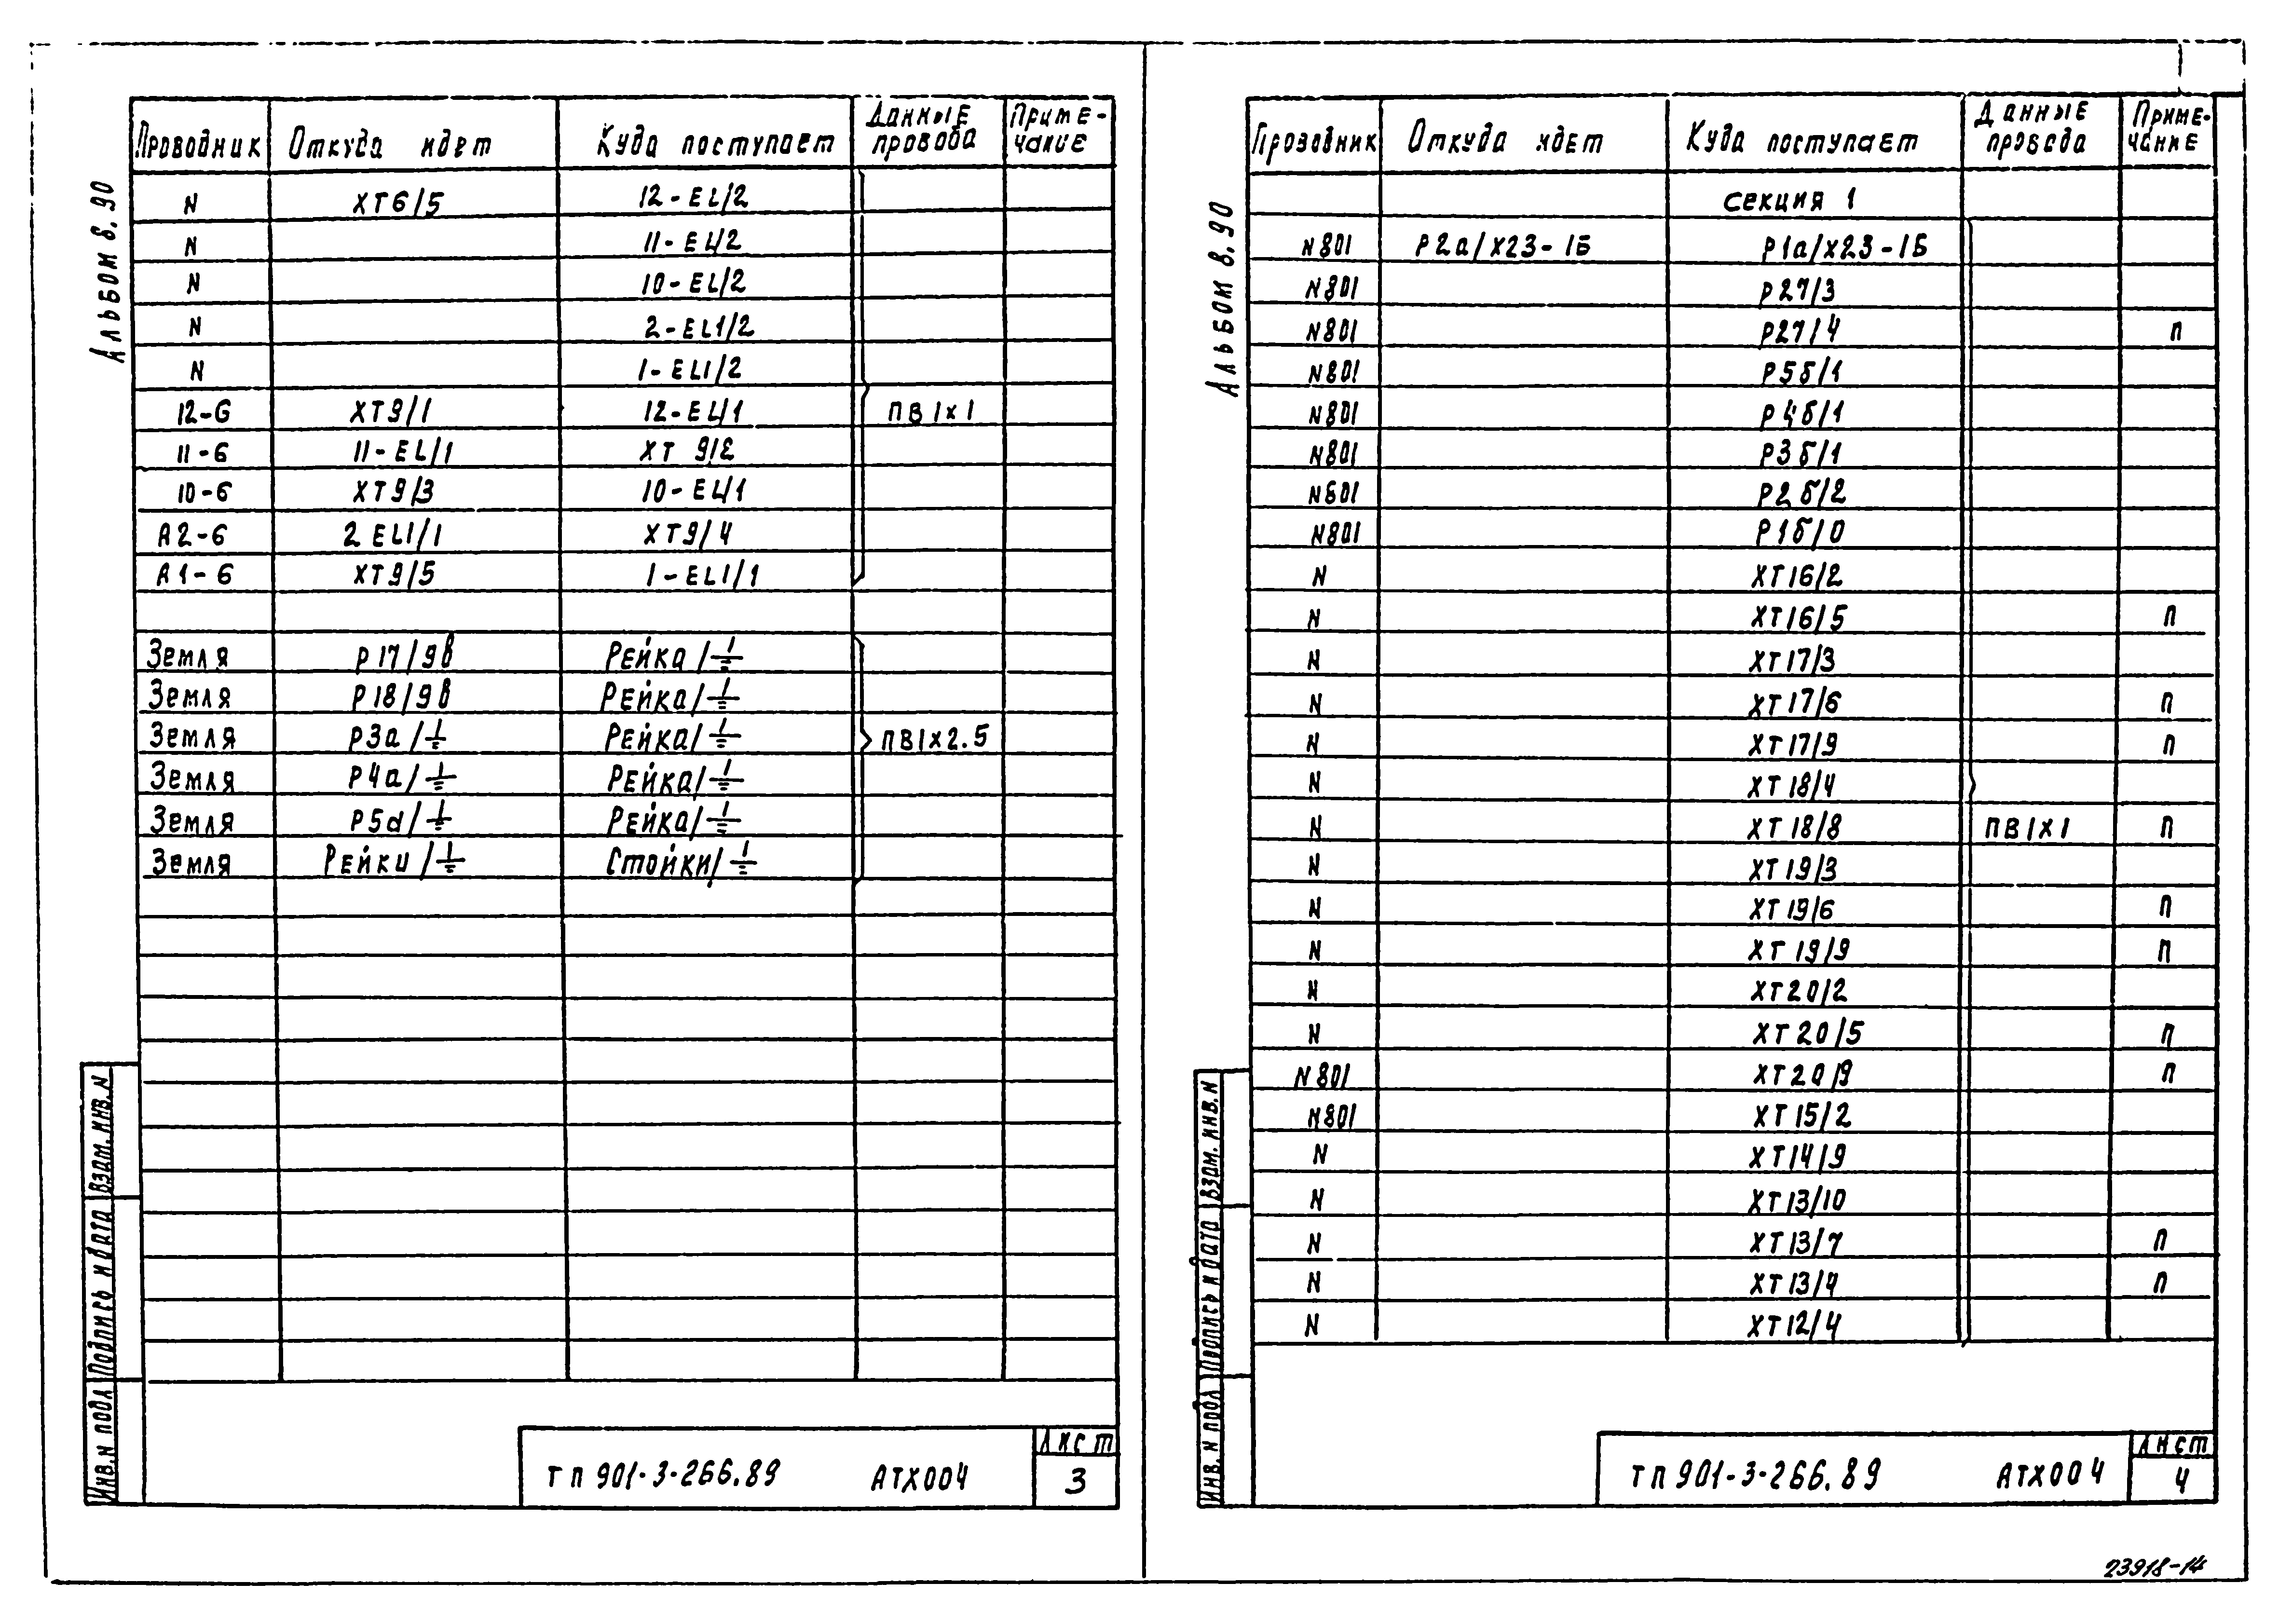 Альбом 8.90
Проводник Откуда идет Куда поступает Данные провода Приме-чание
N ХТ6/5 12-EL/2
N 11-EL/2
N 10-EL/2
N 2-EL1/2
N 1-EL1/2
12-6 ХТ9/1 12-EL/1 ПВ1х1
11-6 11-EL/1 ХТ 9/2
10-6 ХТ9/3 10-EL/1
А2-6 2 EL1/1 ХТ9/4
А1-6 ХТ9/5 1-EL1/1
Земля Р17/9В Рейка/⏚
Земля Р18/9В Рейка/⏚
Земля Р3а/⏚ Рейка/⏚ ПВ1х2.5
Земля Р4а/⏚ Рейка/⏚
Земля Р5а/⏚ Рейка/⏚
Земля Рейки/⏚ Стойки/⏚
Инв.N подл Подпись и дата Взам.инв.N
ТП 901-3-266.89 АТХ004 Лист
3
Альбом 8.90
Проводник Откуда идет Куда поступает Данные провода Приме-чание
Секция 1
N801 Р2а/Х23-1Б Р1а/Х23-1Б
N801 Р27/3
N801 Р27/4 П
N801 Р5б/1
N801 Р4б/1
N801 Р3б/1
N801 Р2б/2
N801 Р1б/0
N ХТ16/2
N ХТ16/5 П
N ХТ17/3
N ХТ17/6 П
N ХТ17/9 П
N ХТ18/4
N ХТ18/8 ПВ1Х1 П
N ХТ19/3
N ХТ19/6 П
N ХТ19/9 П
N ХТ20/2
N ХТ20/5 П
N801 ХТ20/9 П
N801 ХТ15/2
N ХТ14/9
N ХТ13/10
N ХТ13/7 П
N ХТ13/4 П
N ХТ12/4
Инв.N подл Подпись и дата Взам.инв.N
ТП 901-3-266.89 АТХ004 Лист
4
23918-14